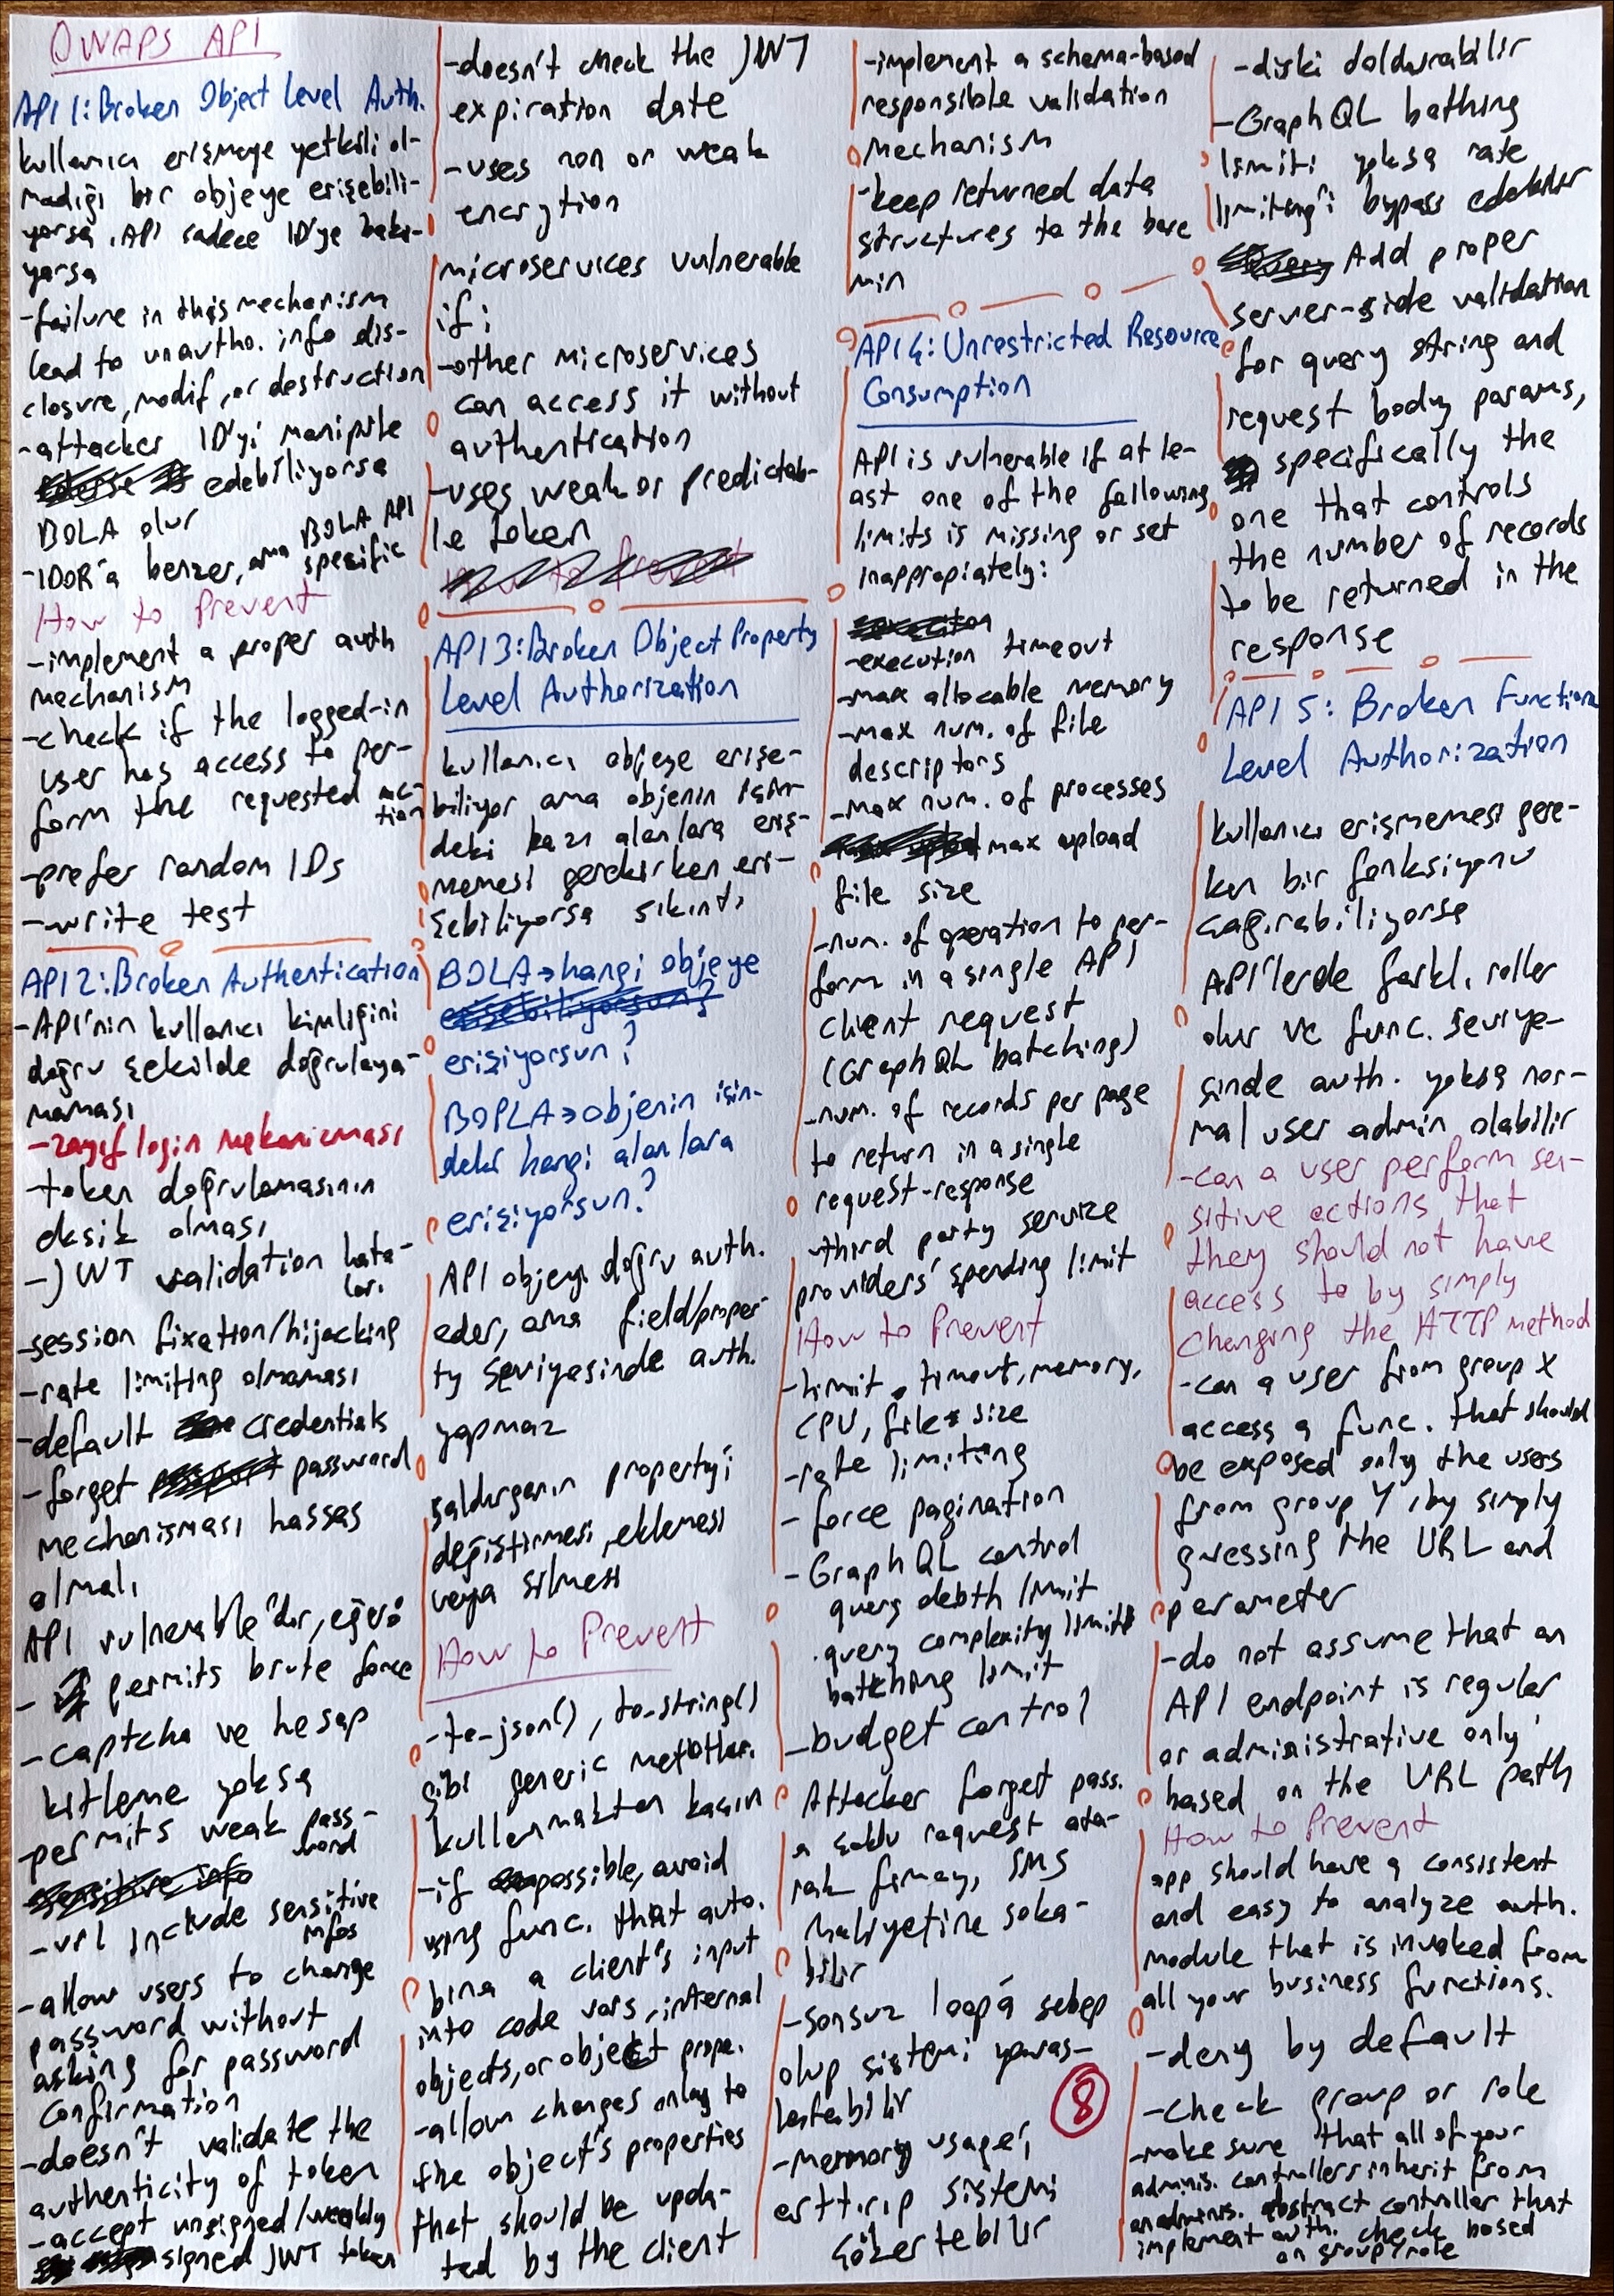 OWAPS API
API 1: Broken Object Level Auth.
kullanıcı erişmeye yetkili ol-
madığı bir objeye erişebili-
yorsa, API sadece ID'ye bakı-
yorsa
-failure in this mechanism
lead to unautho. info dis-
closure, modif, or destruction
-attacker ID'yi manipüle
edebiliyorsa
BOLA olur
-IDOR'a benzer, ama BOLA API
spesific
How to Prevent
-implement a proper auth
mechanism
-check if the logged-in
user has access to per-
form the requested ac-
tion
-prefer random IDs
-write test
API 2: Broken Authentication
-API'nin kullanıcı kimliğini
doğru şekilde doğrulaya-
maması
-zayıf login mekanizması
-token doğrulamasının
eksik olması
-JWT validation hata-
ları
-session fixation/hijacking
-rate limiting olmaması
-default credentials
-forget password
mechanisması hassas
olmalı
API vulnerable'dır, eğer:
- permits brute force
-captcha ve hesap
kitleme yoksa
-permits weak pass-
word
-url include sensitive
infos
-allow users to change
password without
asking for password
confirmation
-doesn't validate the
authenticity of token
-accept unsigned/weakly
signed JWT token
-doesn't check the JWT
expiration date
-uses non or weak
encrytion
microservices vulnerable
if:
-other microservices
can access it without
authentication
-uses weak or predictab-
le token
API 3: Broken Object Property
Level Authorization
kullanıcı objeye erişe-
biliyor ama objenin için-
deki bazı alanlara eriş-
memesi gerekirken eri-
şebiliyorsa sıkıntı
BOLA→hangi objeye
erişiyorsun?
BOPLA→objenin için-
deki hangi alanlara
erişiyorsun?
API objeyi doğru auth.
eder, ama field/proper-
ty seviyesinde auth.
yapmaz
saldırganın property'i
değiştirmesi, eklemesi
veya silmesi
How to Prevent
-to_json(), to_string()
gibi generic metotları
kullanmaktan kaçın
-if possible, avoid
using func. that auto.
bind a client's input
into code vars, internal
objects, or object prope.
-allow changes only to
the object's properties
that should be upda-
ted by the client
-implement a schema-based
responsible validation
mechanism
-keep returned data
structures to the bare
min
API 4: Unrestricted Resource
Consumption
API is vulnerable if at le-
ast one of the following
limits is missing or set
inappropiately:
-execution timeout
-max allocable memory
-max num. of file
descriptors
-max num. of processes
max upload
file size
-num. of operation to per-
form in a single API
client request
(GraphQL batching)
-num. of records per page
to return in a single
request-response
-third party service
providers' spending limit
How to Prevent
-limit timout, memory,
CPU, file size
-rate limiting
-force pagination
-GraphQL control
query debth limit
.query complexity limit
batching limit
-budget control
Attacker forget pass.
a çoklu request ata-
rak firmayı SMS
maliyetine soka-
bilir
-sonsuz loop'a sebep
olup sistemi yavaş-
latabilir
-memory usage'ı
arttırıp sistemi
çökertebilir
8
-diski doldurabilir
-GraphQL bathing
limiti yoksa rate
limiting'i bypass edebilir
Add proper
server-side validation
for query string and
request body params,
specifically the
one that controls
the number of records
to be returned in the
response
API 5: Broken Function
Level Authorization
kullanıcı erişmemesi gere-
ken bir fonksiyonu
çağırabiliyorsa
API'lerde farklı roller
olur ve func. seviye-
sinde auth. yoksa nor-
mal user admin olabilir
-can a user perform sen-
sitive actions that
they should not have
access to by simply
changing the HTTP method
-can a user from group X
access a func. that should
be exposed only the users
from group Y, by simply
guessing the URL and
parameter
-do not assume that an
API endpoint is regular
or administrative only
based on the URL path
How to Prevent
app should have a consistent
and easy to analyze auth.
module that is invoked from
all your business functions.
-deny by default
-check group or role
-make sure that all of your
adminis. controllers inherit from
an adminis. abstract controller that
implement auth. check based
on group/role